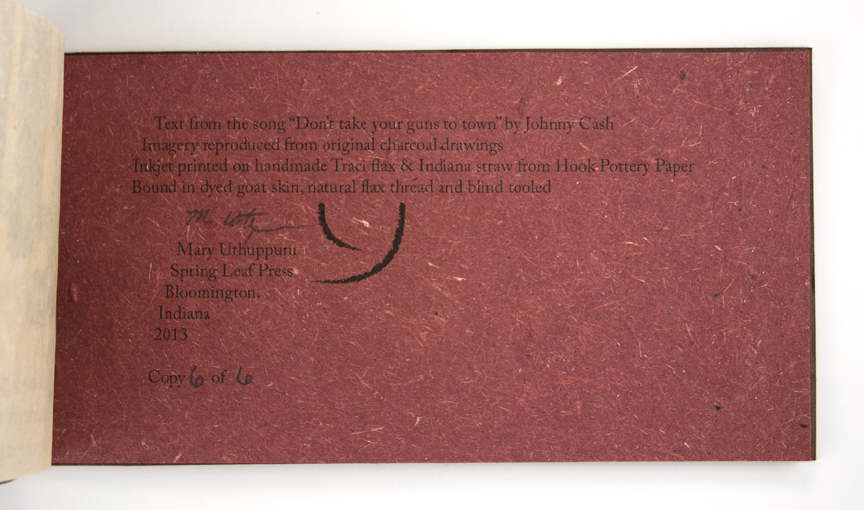 Text from the song “Don't take your guns to town” by Johnny Cash
Imagery reproduced from original charcoal drawings
Inkjet printed on handmade Traci flax & Indiana straw from Hook Pottery Paper
Bound in dyed goat skin, natural flax thread and blind tooled
Mary Uthuppuru
Spring Leaf Press
Bloomington,
Indiana
2013
Copy 6 of 6